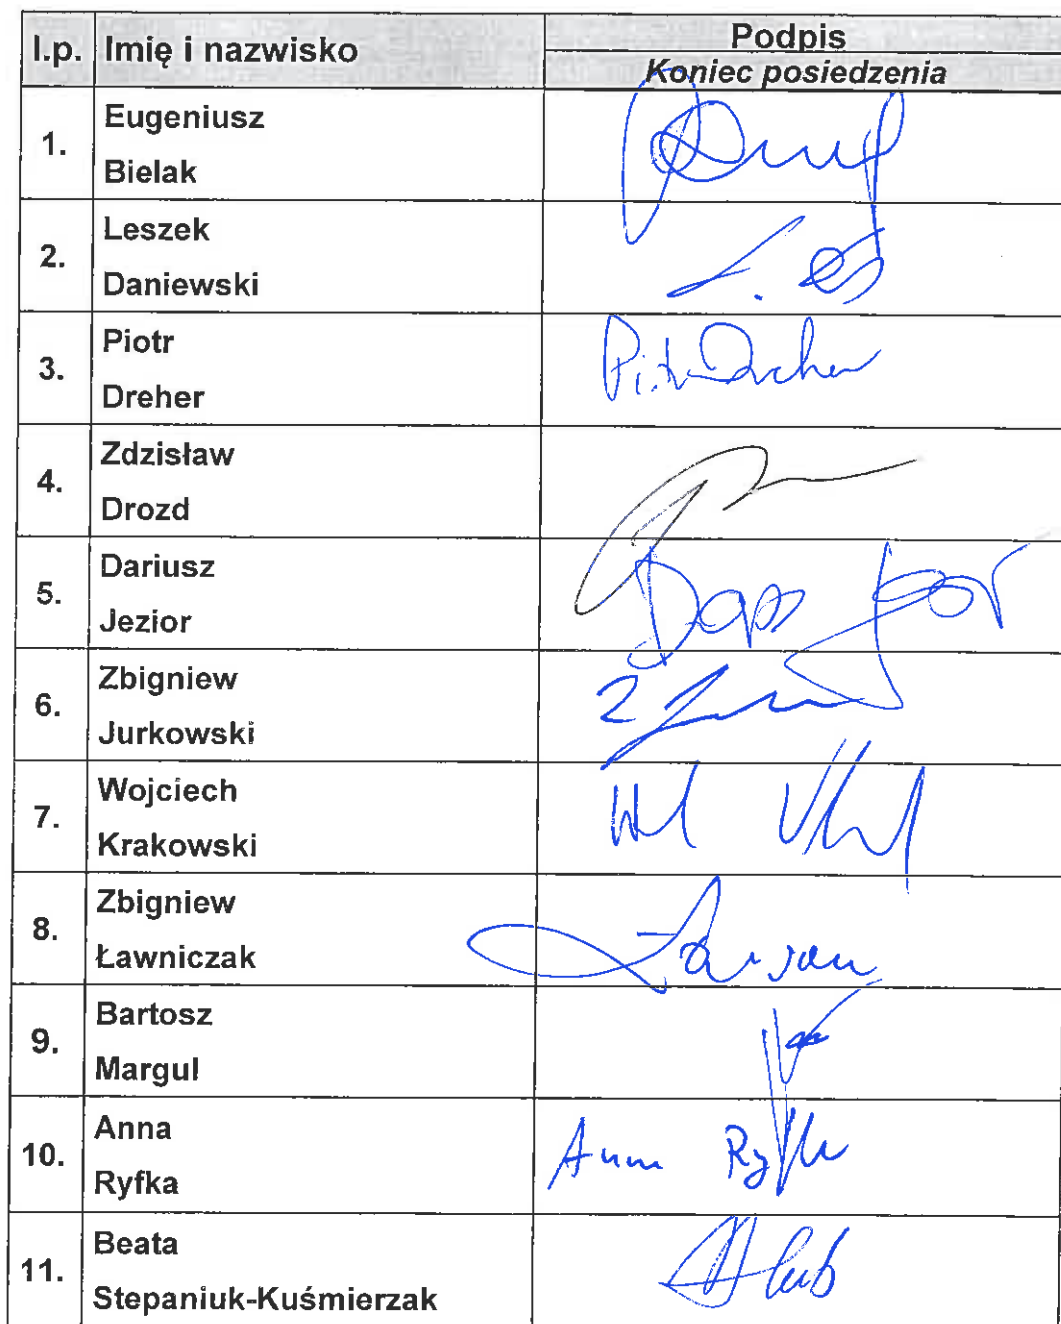 l.p. Imię i nazwisko Podpis
Koniec posiedzenia
1. Eugeniusz
Bielak
2. Leszek
Daniewski
3. Piotr
Dreher
Piotr Dreher
4. Zdzisław
Drozd
5. Dariusz
Jezior
6. Zbigniew
Jurkowski
7. Wojciech
Krakowski
8. Zbigniew
Ławniczak
9. Bartosz
Margul
10. Anna
Ryfka
Anna Ryfka
11. Beata
Stepaniuk-Kuśmierzak